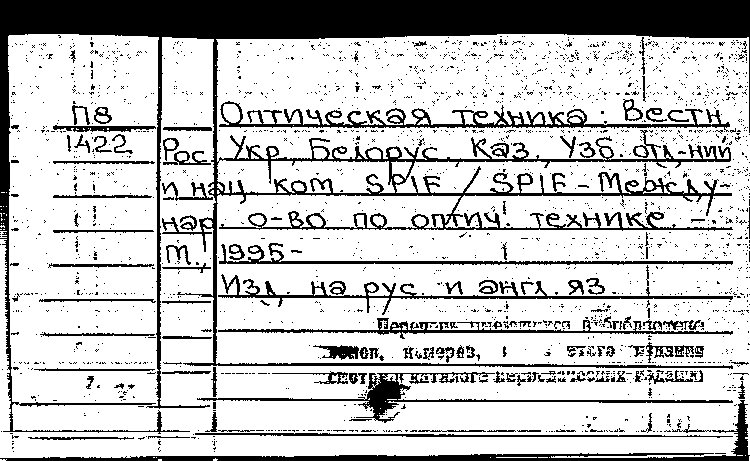 П8 Оптическая техника : Вестн.
1422 Рос., Укр., Белорус., Каз., Узб. отд-ний
и нац. ком. SPIE / SPIE - Между-
нар. о-во по оптич. технике. -
М., 1995-
Изд. на рус. и англ. яз.
Перечень имеющихся в библиотеке
томов, номеров, этого издания
смотри в каталоге периодических изданий